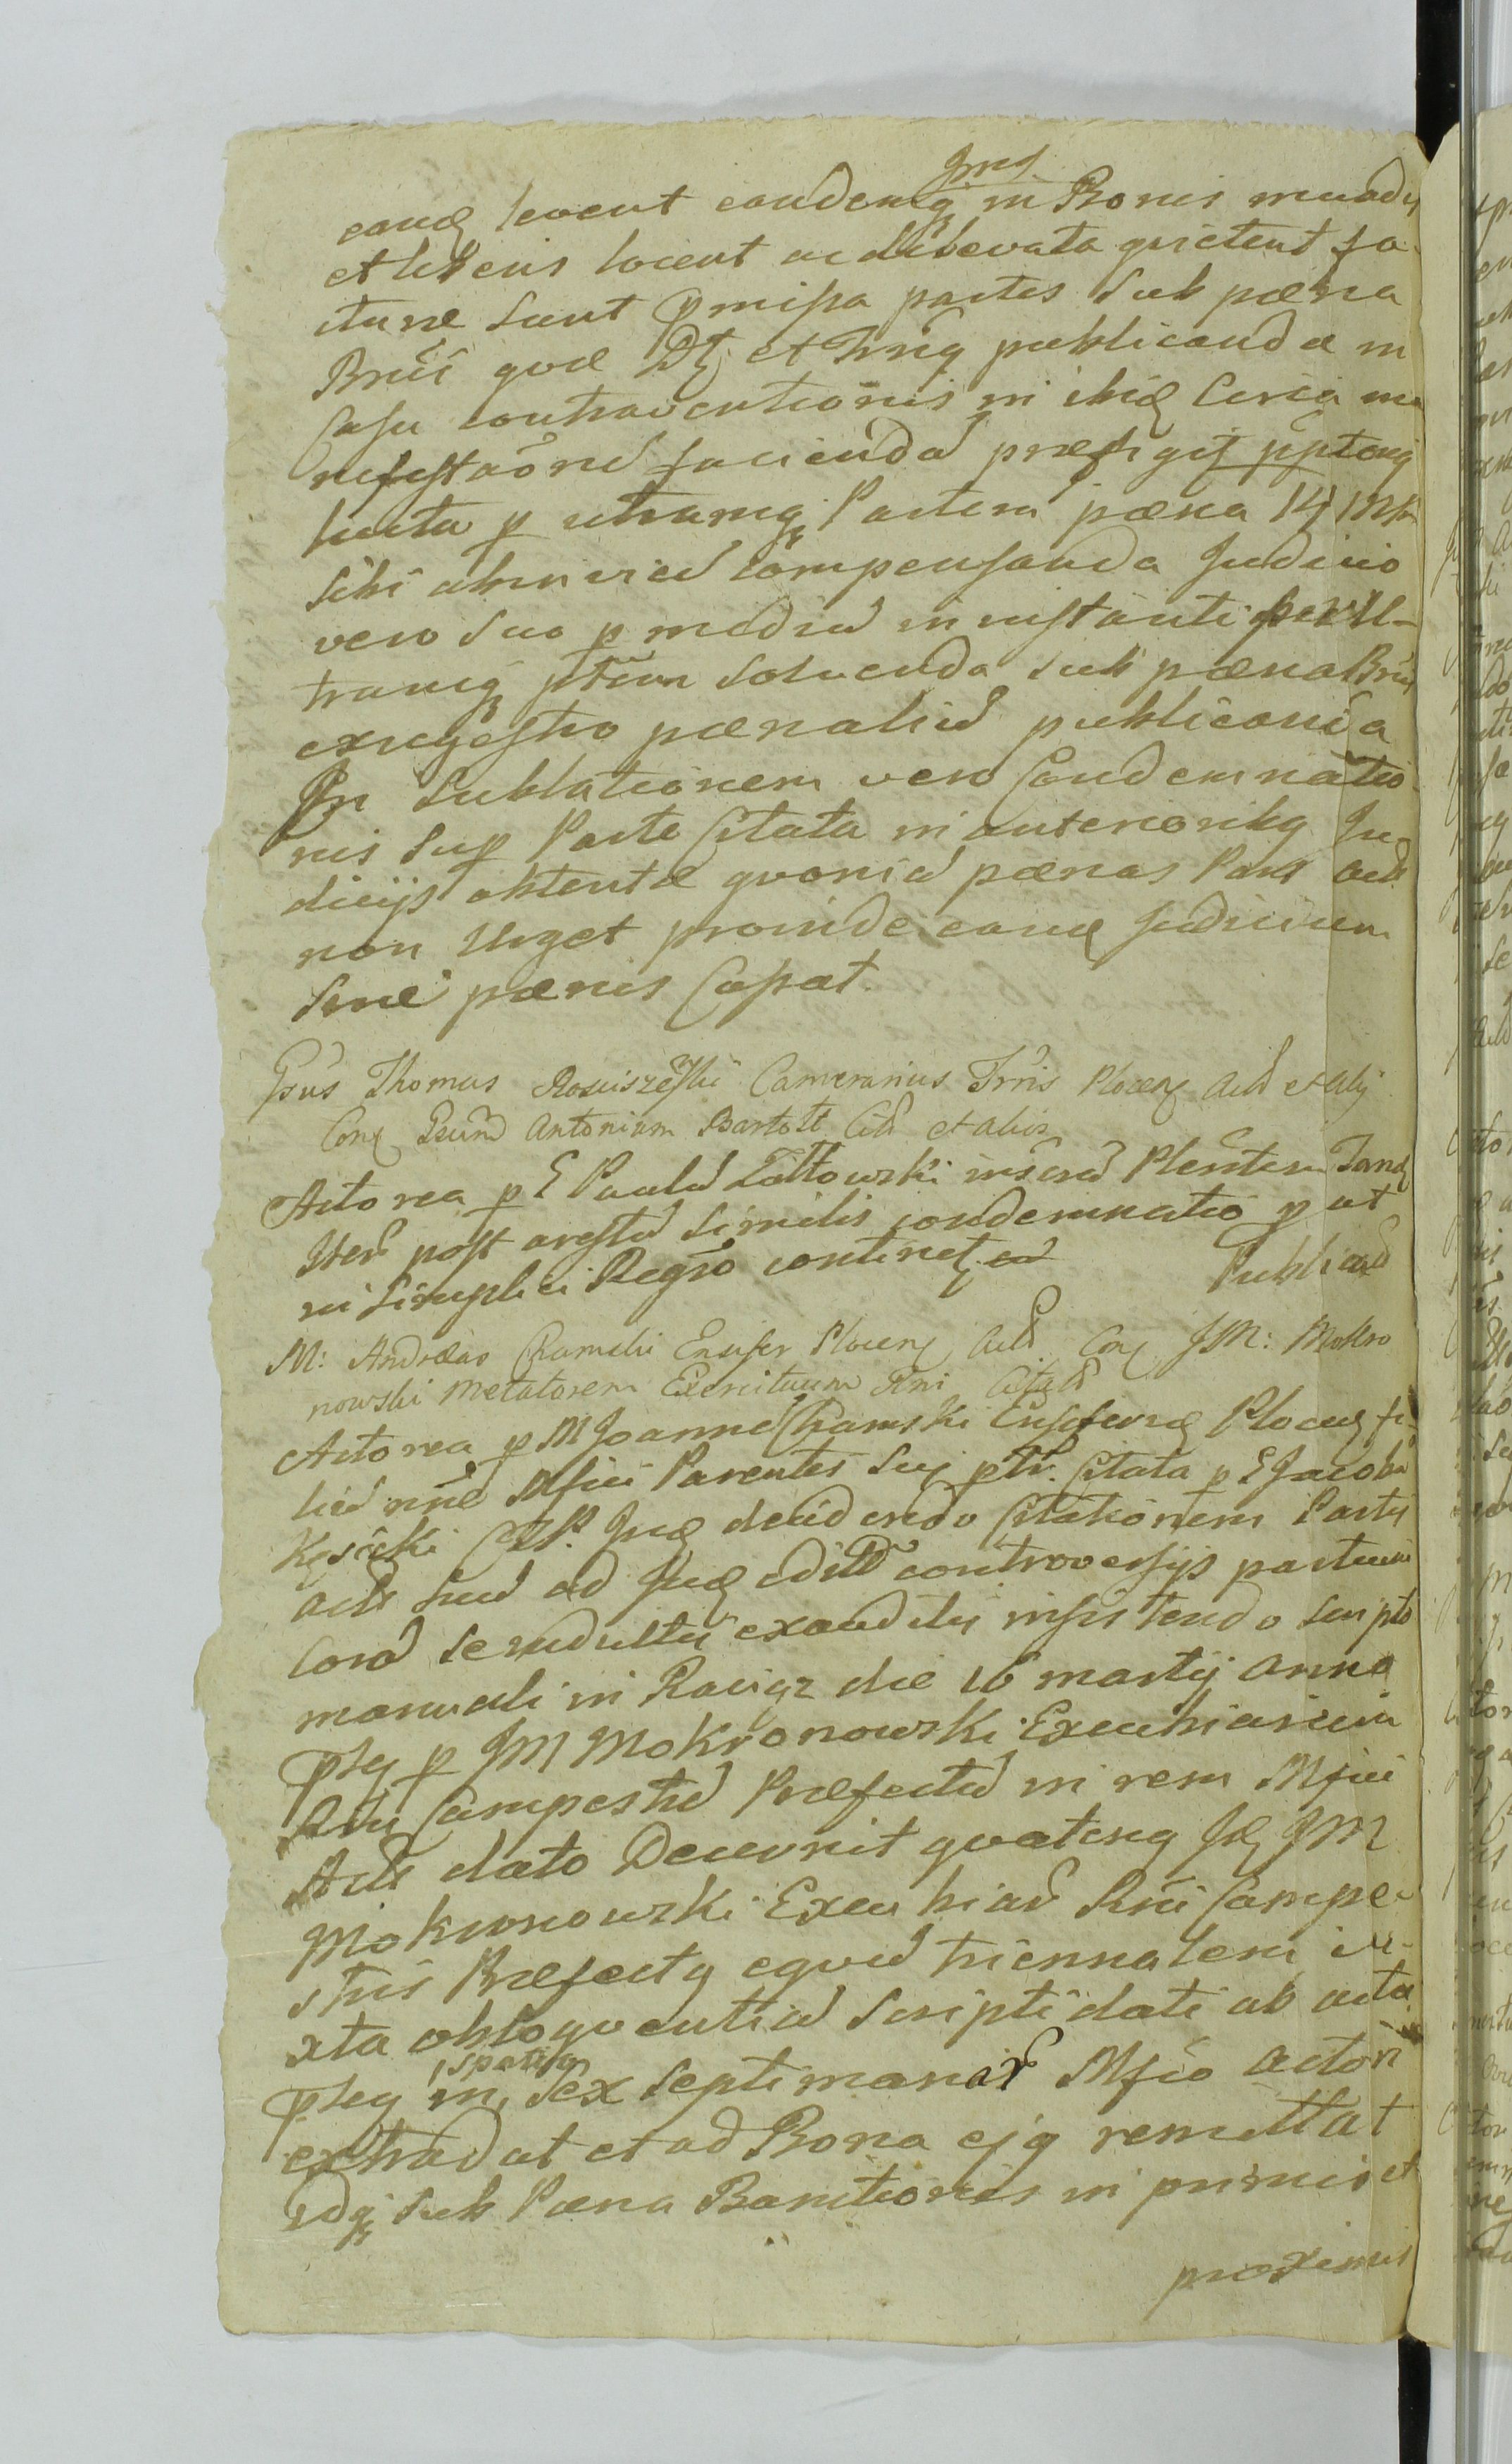 eandę levent eandemq̨ in Bonis mundis
Jms
et liberis locent ac delevata quietent fa-
cturæ sunt præmissa partes sub pæna
Bnīs quæ Dt̨ et Trnīq̨ publicanda in
Casu contraventionis in ibid̨ Circa ma-
nifestaōnē faciendā præfigit
lucta p utramq̨ Partem pæna 14 Mr̄
sibi ab invicē compensanda Judicio
vero suo p mediū in instanti per U-
tramq̨ ptēm solvenda sub pæna Bnīs
ex regestro pænaliū publicanda
In sublationem vero Condemnatio-
nis sup Parte Citata in anterioribq Ju-
dicijs obtentæ quoniā pænas Pars Actr̄
non Urget proinde eand̨ Judicium
sine pænis Cassat.
Gsūs Thomas Rosciszewski Camerarius Trrīs Plocenş Actr̄ et Alij
Conş Gsum̄ Antonium Bartolt Citt̄ et alios
Actorea p G Paulū Żółtowski insērā Plenten Tand̨
Iter̄ post arestū similis condemnatio p ut
in simplici Regrō continet̨ ex Publicat̄
M: Andræas Chamski Ensifer Plocenş Actr̄ Conş JM: Mokro
nowski Metatorem Exercituum Rni Citatt̄
Actorea p M Joannē Chamski Ensiferidę Plocenş fi-
liū nñe Mfici Parentis sui ptr̄. Citata p G Jacobū
Kęsicki CJP. Jud̨ decidendo Citationem Partis
Actr̄ suū ad Jud̨ editā controversijs partium
Corā se indultis exauditis insistendo scripto
manuali in Raciąz die 16 martij Anno
Præsq̨ p JM Mokronowski Excubiarum
Rni Campestrū Præfectū in rem Mfici
Actr̄ dato Decernit quatenq̨ Jd̨ JM
Mokronowski Excubiar̄ Rni Campe-
stris Præfectq̨ equū triennalem iu-
xta obloquentiā scripti dati ab acta
Præsq̨ in spatio sex septimanar̄ Mfico Actori
extradat et ad Bona ejq̨ remittat
Idq̨ sub Pæna Banitionis in primis et
proximis